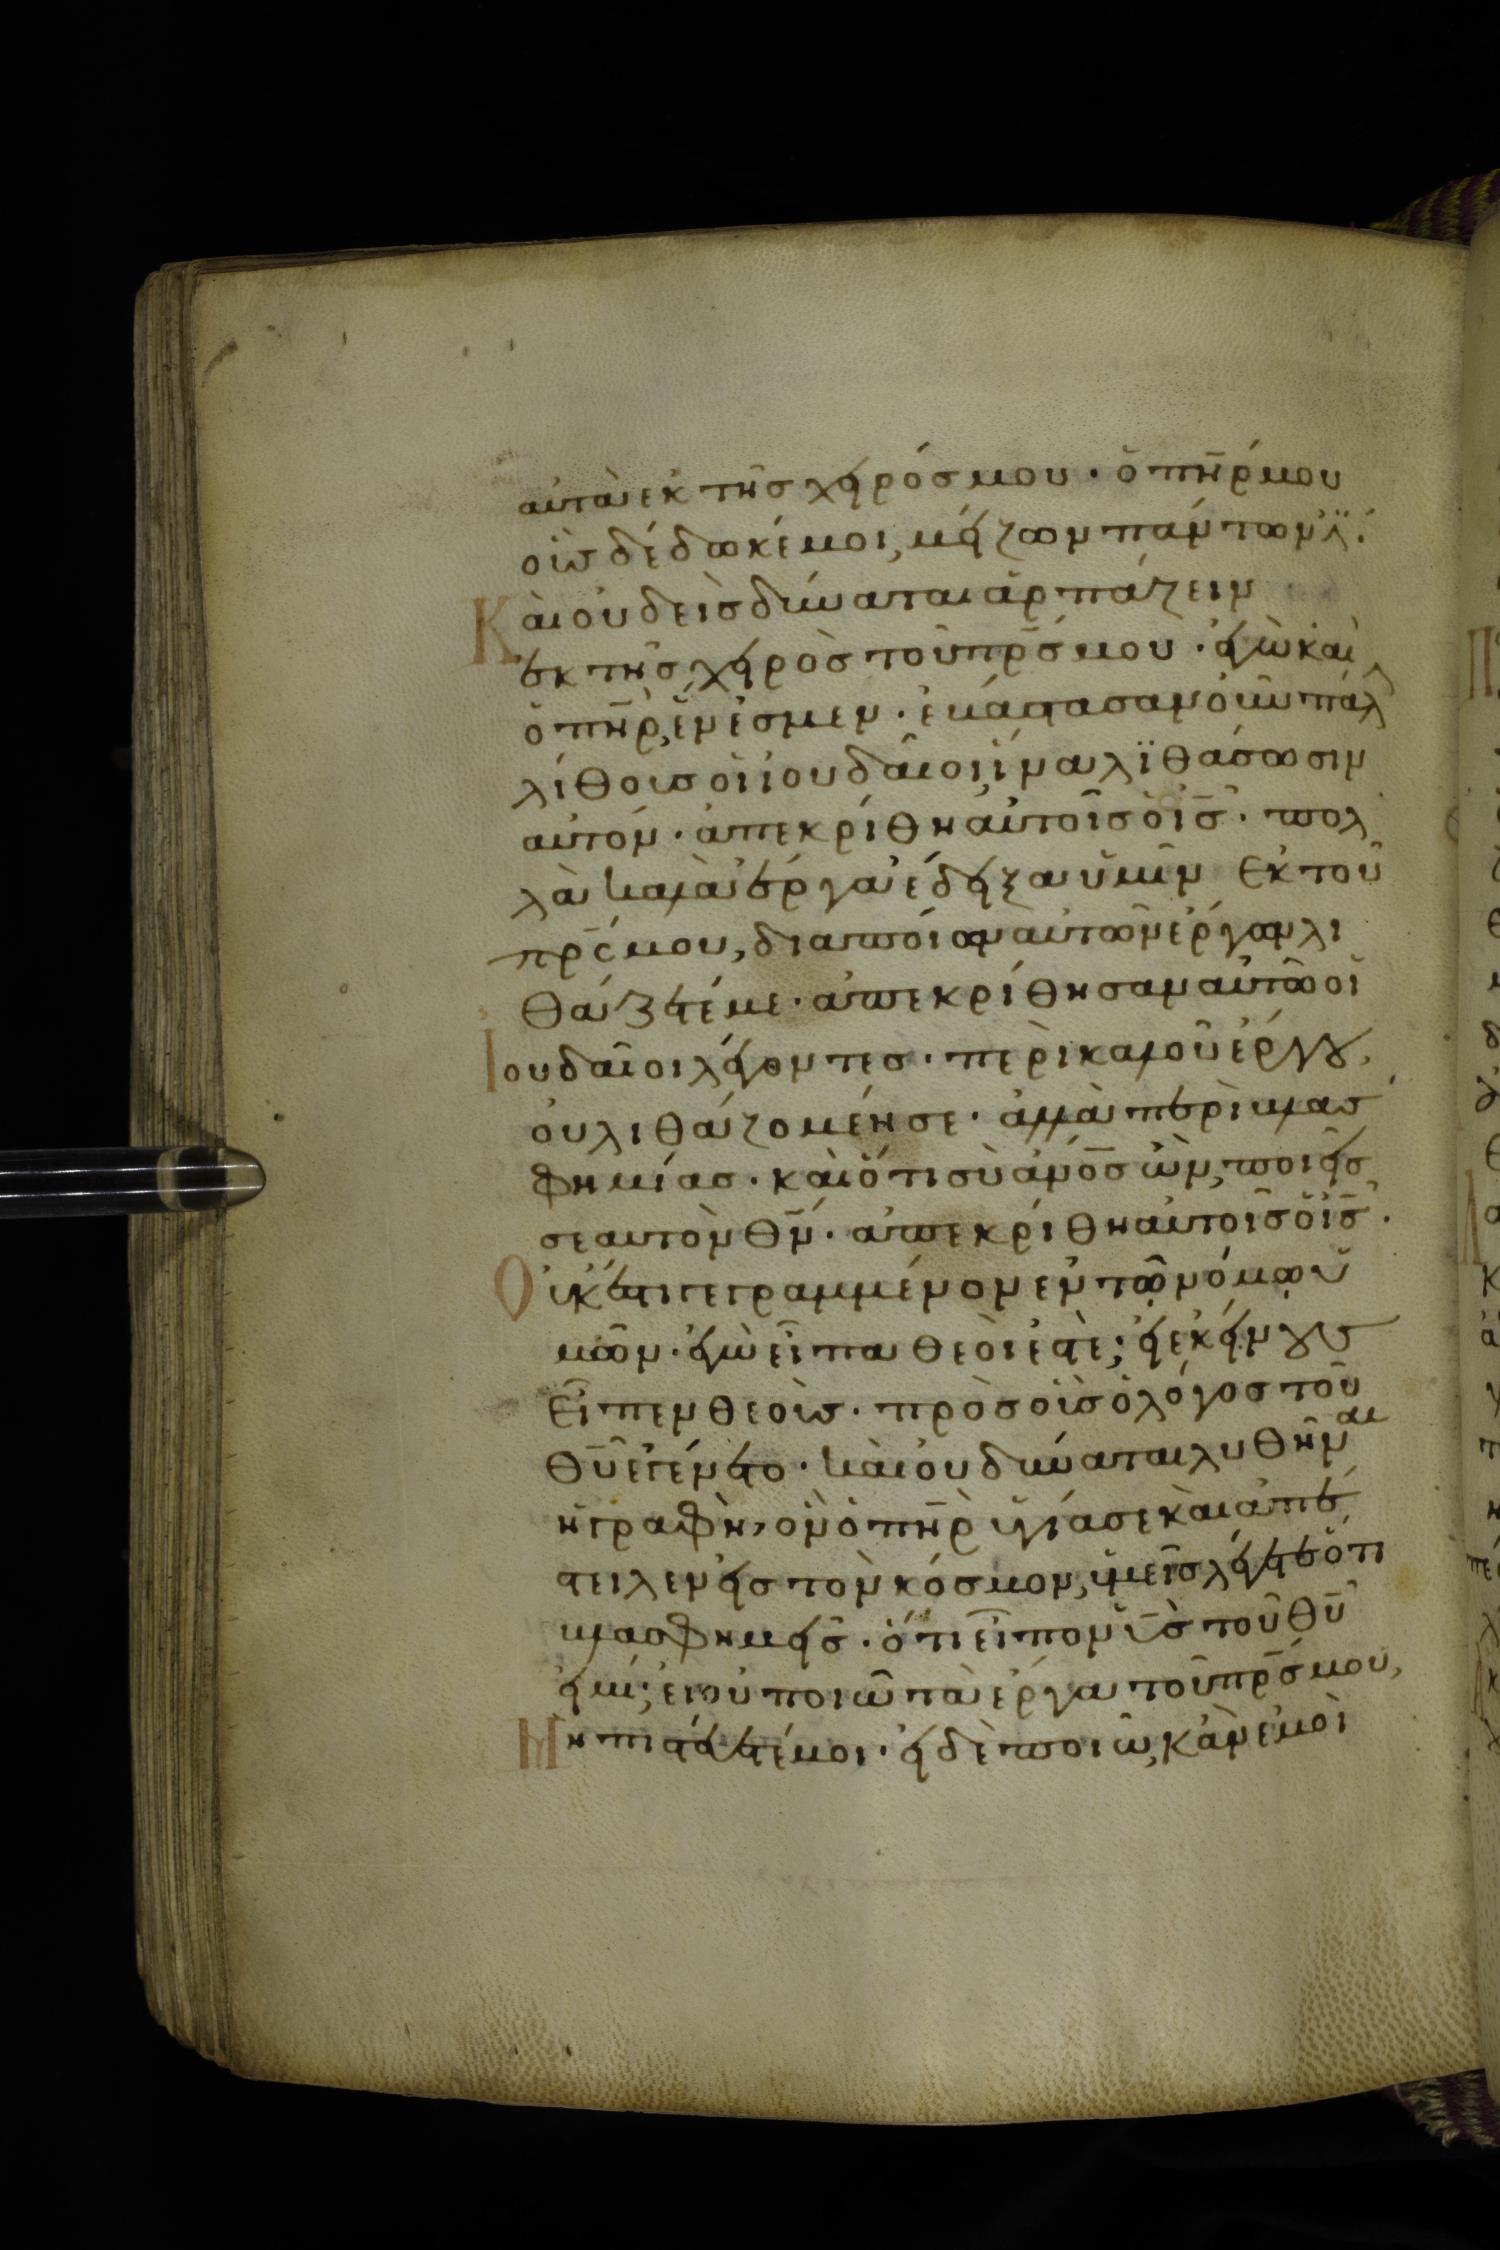 αὐτὰ ἐκ τῆς χειρός μου · ὁ πη̅ρ μου
οἷς δέδωκέ μοι, μείζων πάντων ἐ̈·
Καὶ οὐδεὶς δύναται ἁρπάζειν
ἐκ τῆς χειρὸς τοῦ πρ̅ς μου · ἐγὼ καὶ
ὁ πη̅ρ, ἕν ἐσμεν · ἐβάστασαν οὖν πάλ
λίθους οἱ ἰουδαῖοι ἵνα λϊθάσωσιν
αὐτόν · ἀπεκρίθη αὐτοῖς ὁ ι̅ς · πολ
λὰ καλὰ ἔργα ἔδειξα ὑμῖν ἐκ τοῦ
πρ̅ς μου, διὰ ποίων αὐτῶν ἔργων λι
θάζετέ με · ἀπεκρίθησαν αὐτῷ οἱ
Ἰουδαῖοι λέγοντες · περὶ καλοῦ ἔργου,
οὐ λιθάζομέν σε · ἀλλὰ περὶ βλασ
φημίας · καὶ ὅτι σὺ α̅νο̅ς ὢν, ποιεῖς
σεαυτὸν θ̅ν · ἀπεκρίθη αὐτοῖς ὁ ι̅ς ·
Οὐκ ἔστι γεγραμμένον ἐν τῷ νόμῳ ὑ
μῶν · ἐγὼ εἶπα θεοί ἐστε; εἰ ἐκείνους
εἶπεν θεοὺς · πρὸς οὓς ὁ λόγος τοῦ
θ̅υ ἐγένετο · καὶ οὐ δύναται λυθῆναι
ἡ γραφὴ, ὃν ὁ πη̅ρ ἡγίασε καὶ ἀπέ
στειλεν εἰς τὸν κόσμον, ὑμεῖς λέγετε ὅτι
βλασφημεῖς · ὅτι εἶπον υ̅ς τοῦ θ̅υ
εἰμί; εἰ οὐ ποιῶ τὰ ἔργα τοῦ πρ̅ς μου,
Μὴ πιστεύετέ μοι · εἰ δὲ ποιῶ, κἂν ἐμοὶ